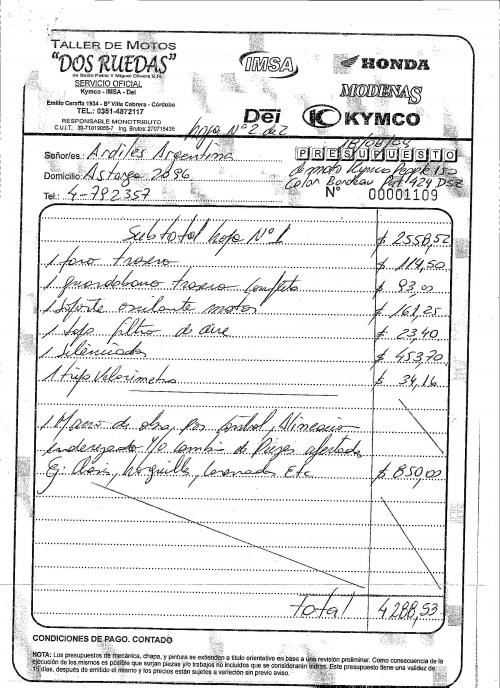 TALLER DE MOTOS
"DOS RUEDAS"
de Gesto Pablo Y Miguel Olivera S.H.
SERVICIO OFICIAL
Kymco - IMSA - Dei
Emilio Caraffa 1934 - Bº Villa Cabrera - Córdoba
TEL.: 0351-4872117
RESPONSABLE MONOTRIBUTO
C.U.I.T. 30-71019055-7 Ing. Brutos: 270715435
IMSA
HONDA
MODENAS
Dei
KYMCO
hoja Nº 2 de 2
Señor/es: Ardiles Argentina
PRESUPUESTO
Domicilio: Astorga 2096
Kymco People 150
Color Bordeau 424 DSZ
Tel.: 4-792357
Nº 00001109
Subtotal hoja Nº 1 $ 2558,52
1 faro trasero $ 114,50
1 guardabarro trasero completo $ 93,00
1 soporte oscilante motor $ 161,25
1 tapa filtro de aire $ 23,40
1 silenciador $ 453,70
1 tripa Velocimetro $ 34,16
1 Mano de obra, por control, Alineacion
enderezado Y/o cambio de piezas afectadas
Ej: Chasis, horquilla, Etc $ 850,00
total 4288,53
CONDICIONES DE PAGO. CONTADO
NOTA: Los presupuestos de mecánica, chapa, y pintura se extienden a título orientativo en base a una revisión preliminar. Como consecuencia de la
ejecución de los mismos es posible que surjan piezas y/o trabajos no incluidos que se considerarán extras. Este presupuesto tiene una validez de
15 días, después de emitido el mismo y los precios están sujetos a variación sin previo aviso.